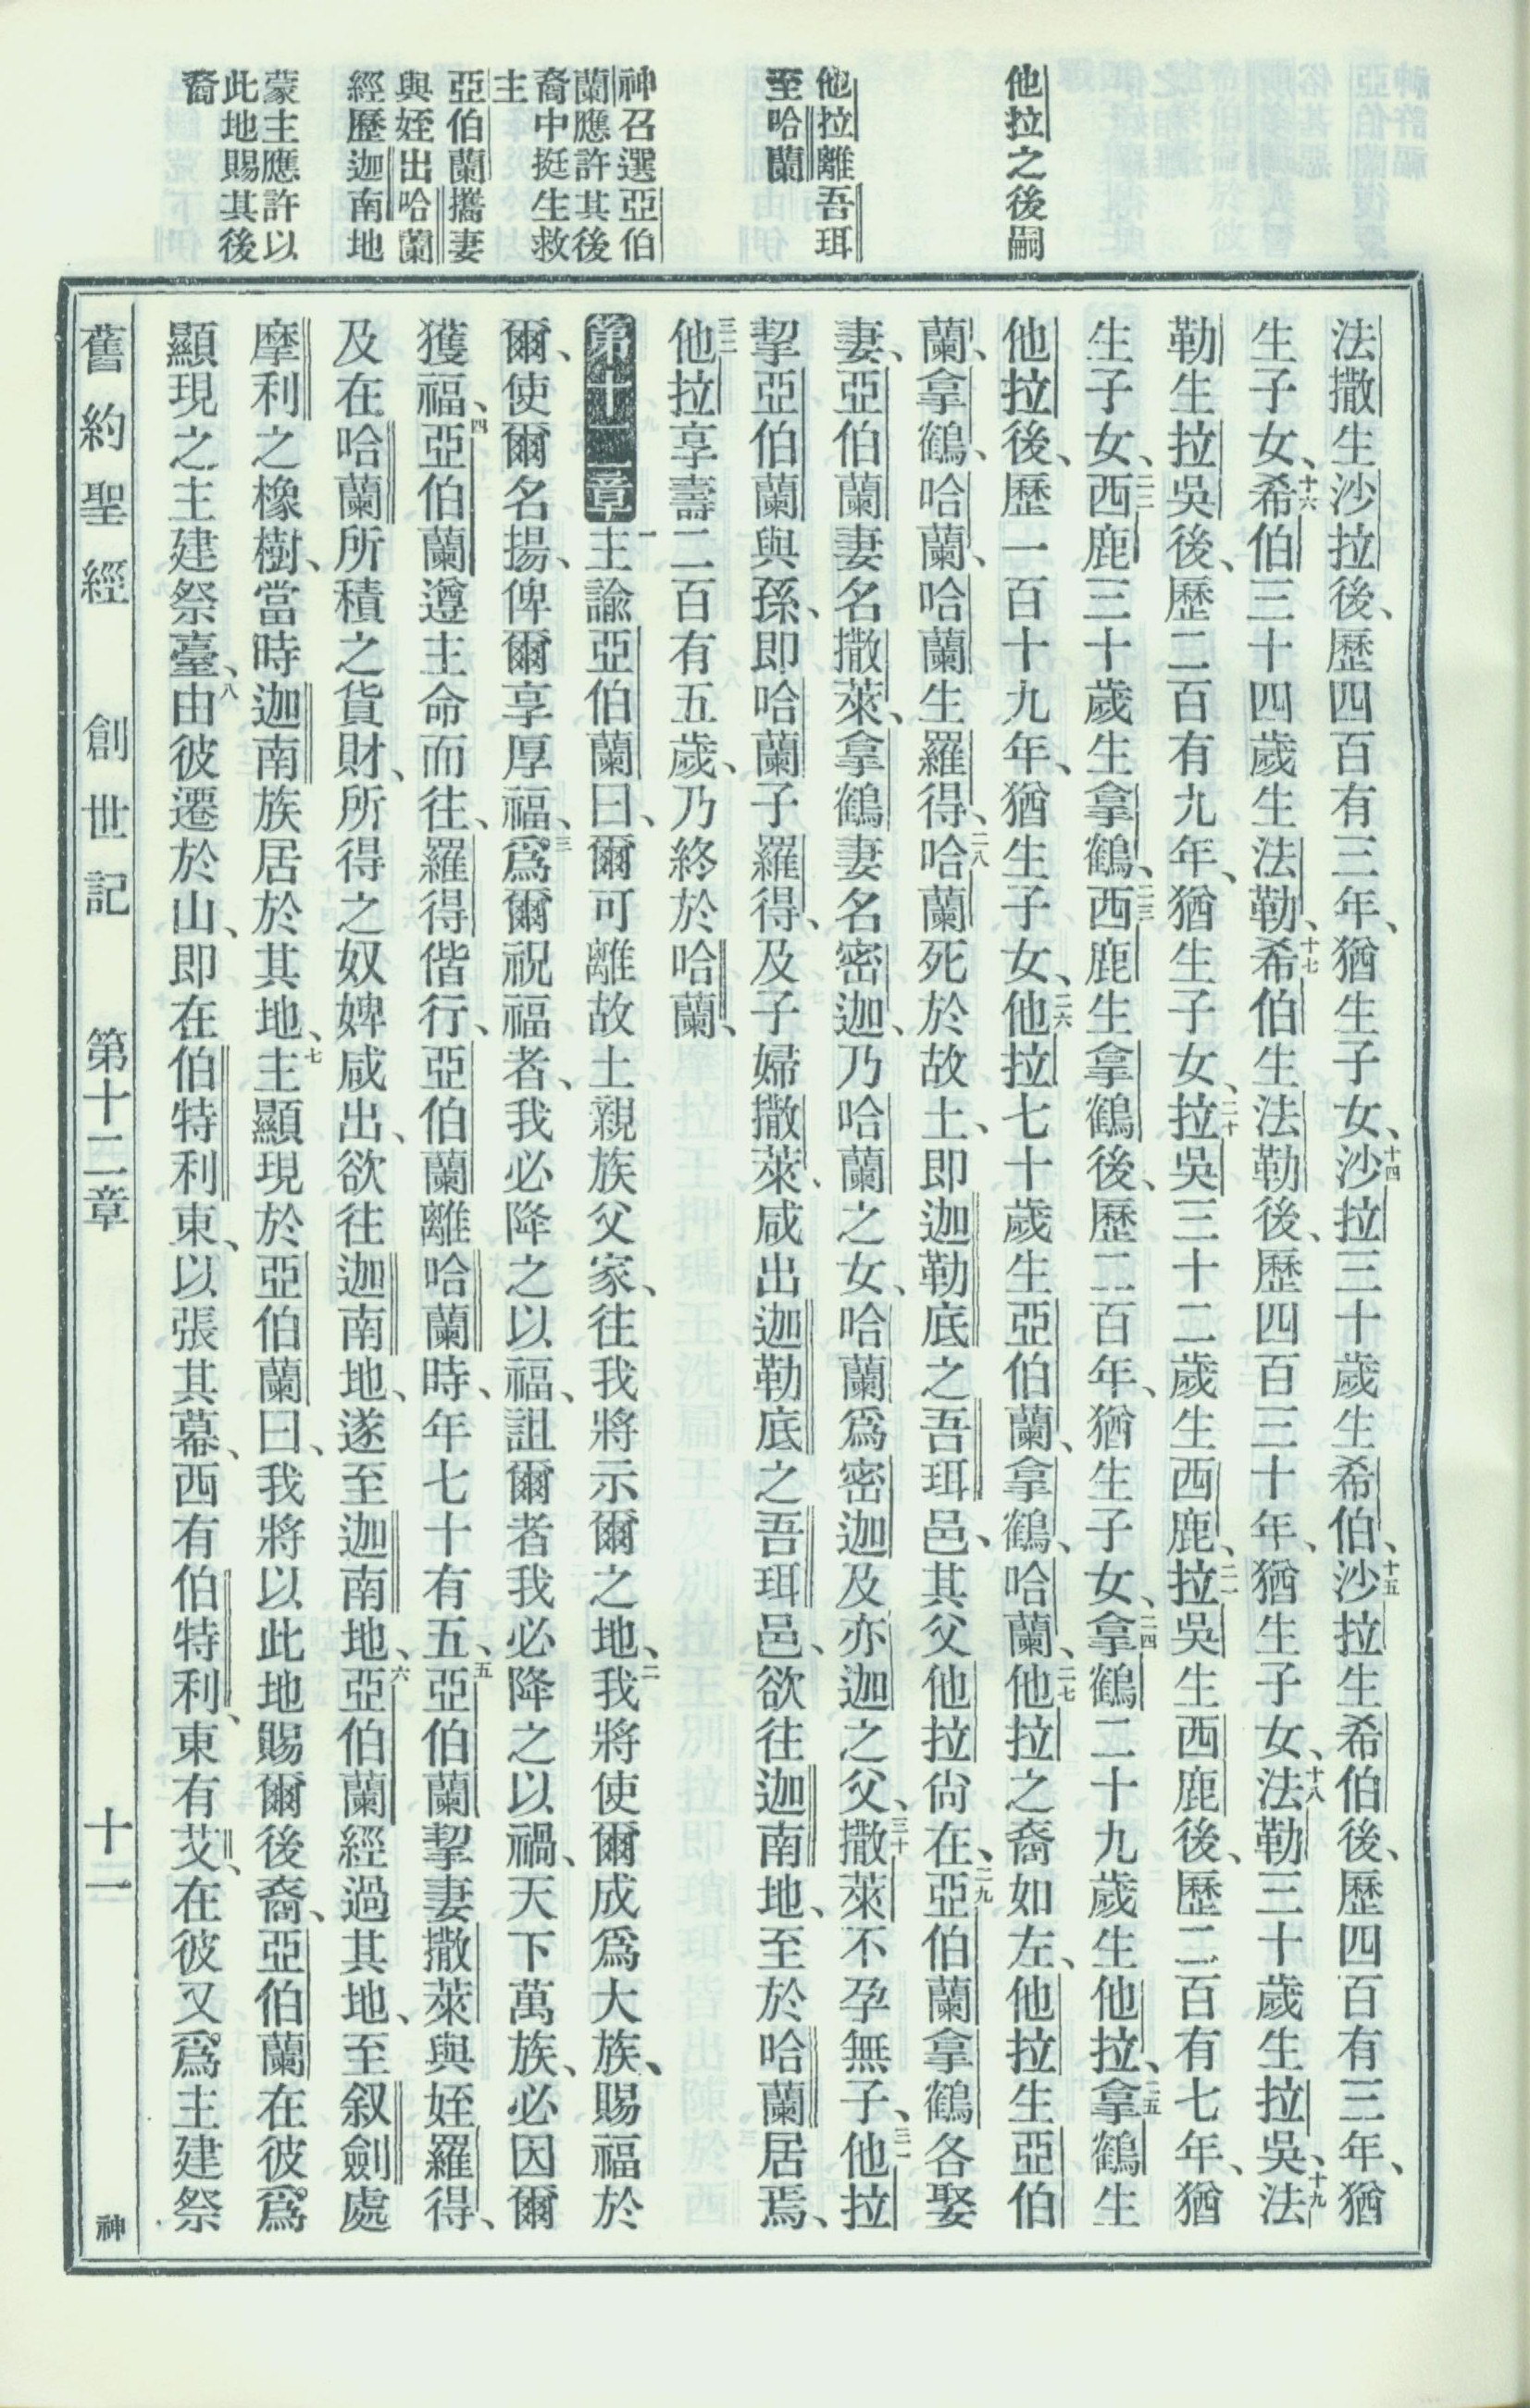 他拉之後嗣
他拉離吾珥
至哈蘭
神召選亞伯
蘭應許其後
裔中挺生救
主
亞伯蘭攜妻
與姪出哈蘭
經歷迦南地
蒙主應許以
此地賜其後
裔
法撒生沙拉後、歷四百有三年、猶生子女、十四沙拉三十歲生希伯、十五沙拉生希伯後、歷四百有三年、猶
生子女、十六希伯三十四歲生法勒、十七希伯生法勒後、歷四百三十年、猶生子女、十八法勒三十歲生拉吳、十九法
勒生拉吳後、歷二百有九年、猶生子女、二十拉吳三十二歲生西鹿、二一拉吳生西鹿後、歷二百有七年、猶
生子女、二二西鹿三十歲生拿鶴、二三西鹿生拿鶴後、歷二百年、猶生子女、二四拿鶴二十九歲生他拉、二五拿鶴生
他拉後、歷一百十九年、猶生子女、二六他拉七十歲生亞伯蘭、拿鶴、哈蘭、二七他拉之裔如左、他拉生亞伯
蘭、拿鶴、哈蘭、哈蘭生羅得、二八哈蘭死於故土、即迦勒底之吾珥邑、其父他拉尙在、二九亞伯蘭拿鶴各娶
妻、亞伯蘭妻名撒萊、拿鶴妻名密迦、乃哈蘭之女、哈蘭爲密迦及亦迦之父、三十撒萊不孕無子、三一他拉
挈亞伯蘭與孫、即哈蘭子羅得、及子婦撒萊、咸出迦勒底之吾珥邑、欲往迦南地、至於哈蘭居焉、
三二他拉享壽二百有五歲、乃終於哈蘭、
第十二章一主諭亞伯蘭曰、爾可離故土親族父家、往我將示爾之地、二我將使爾成爲大族、賜福於
爾、使爾名揚、俾爾享厚福、三爲爾祝福者、我必降之以福、詛爾者我必降之以禍、天下萬族、必因爾
獲福、四亞伯蘭遵主命而往、羅得偕行、亞伯蘭離哈蘭時、年七十有五、五亞伯蘭挈妻撒萊與姪羅得、
及在哈蘭所積之貨財、所得之奴婢咸出、欲往迦南地、遂至迦南地、六亞伯蘭經過其地、至叙劍處
摩利之橡樹、當時迦南族居於其地、七主顯現於亞伯蘭曰、我將以此地賜爾後裔、亞伯蘭在彼爲
顯現之主建祭臺、八由彼遷於山、即在伯特利東、以張其幕、西有伯特利、東有艾、在彼又爲主建祭
舊約聖經 創世記 第十二章 十二 神